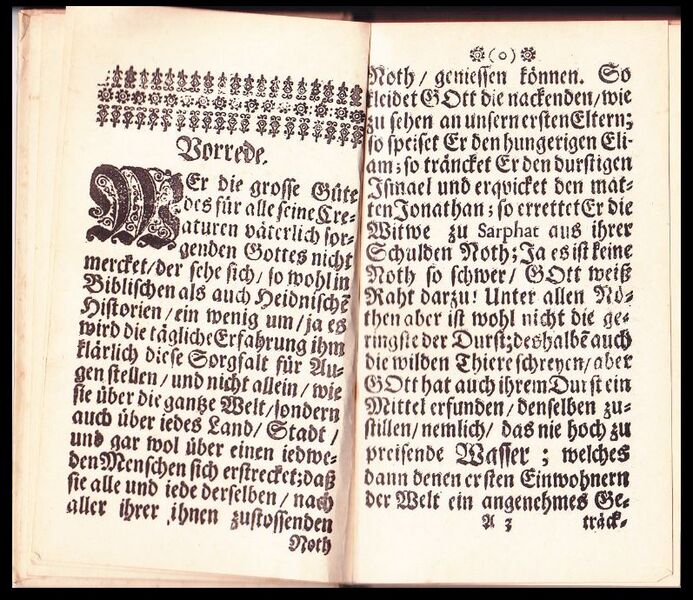 Vorrede.
WEr die grosse Güte
des für alle seine Cre-
aturen väterlich sor-
genden Gottes nicht
mercket/der sehe sich/ so wohl in
Biblischen als auch Heidnischē
Historien/ein wenig um/ja es
wird die tägliche Erfahrung ihm
klärlich diese Sorgfalt für Au-
gen stellen/und nicht allein/wie
sie über die gantze Welt/sondern
auch über iedes Land/ Stadt/
und gar wol über einen iedwe-
den Menschen sich erstrecket;daß
sie alle und iede derselben/ nach
aller ihrer ihnen zustossenden
Noth
(0)
Noth/ geniessen können. So
kleidet GOtt die nackenden/wie
zu sehen an unsern ersten Eltern;
so speiset Er den hungerigen Eli-
am; so träncket Er den durstigen
Ismael und erqvicket den mat-
ten Jonathan; so errettet Er die
Witwe zu Sarphat aus ihrer
Schulden Noth; Ja es ist keine
Noth so schwer/ GOtt weiß
Raht darzu! Unter allen Nö-
then aber ist wohl nicht die ge-
ringste der Durst;deshalbē auch
die wilden Thiere schreyen/aber
GOtt hat auch ihrem Durst ein
Mittel erfunden/denselben zu-
stillen/nemlich/ das nie hoch zu
preisende Wasser; welches
dann denen ersten Einwohnern
der Welt ein angenehmes Ge-
A 3 träck-